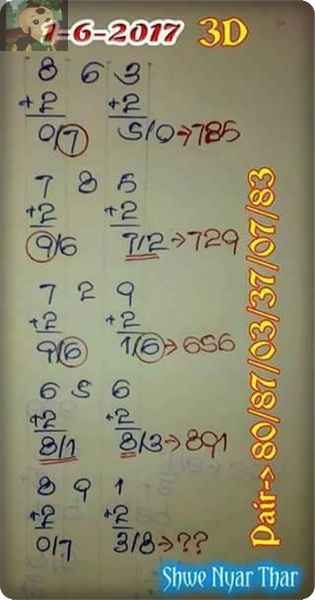 1-6-2017 3D
8 6 3
+2 +2
0/7 5/0→785
7 8 5
+2 +2
9/6 7/2→729
7 2 9
+2 +2
9/6 1/6→656
6 5 6
+2 +2
8/1 8/3→891
8 9 1
+2 +2
0/7 3/8→??
Pair-> 80/87/03/37/07/83
Shwe Nyar Thar